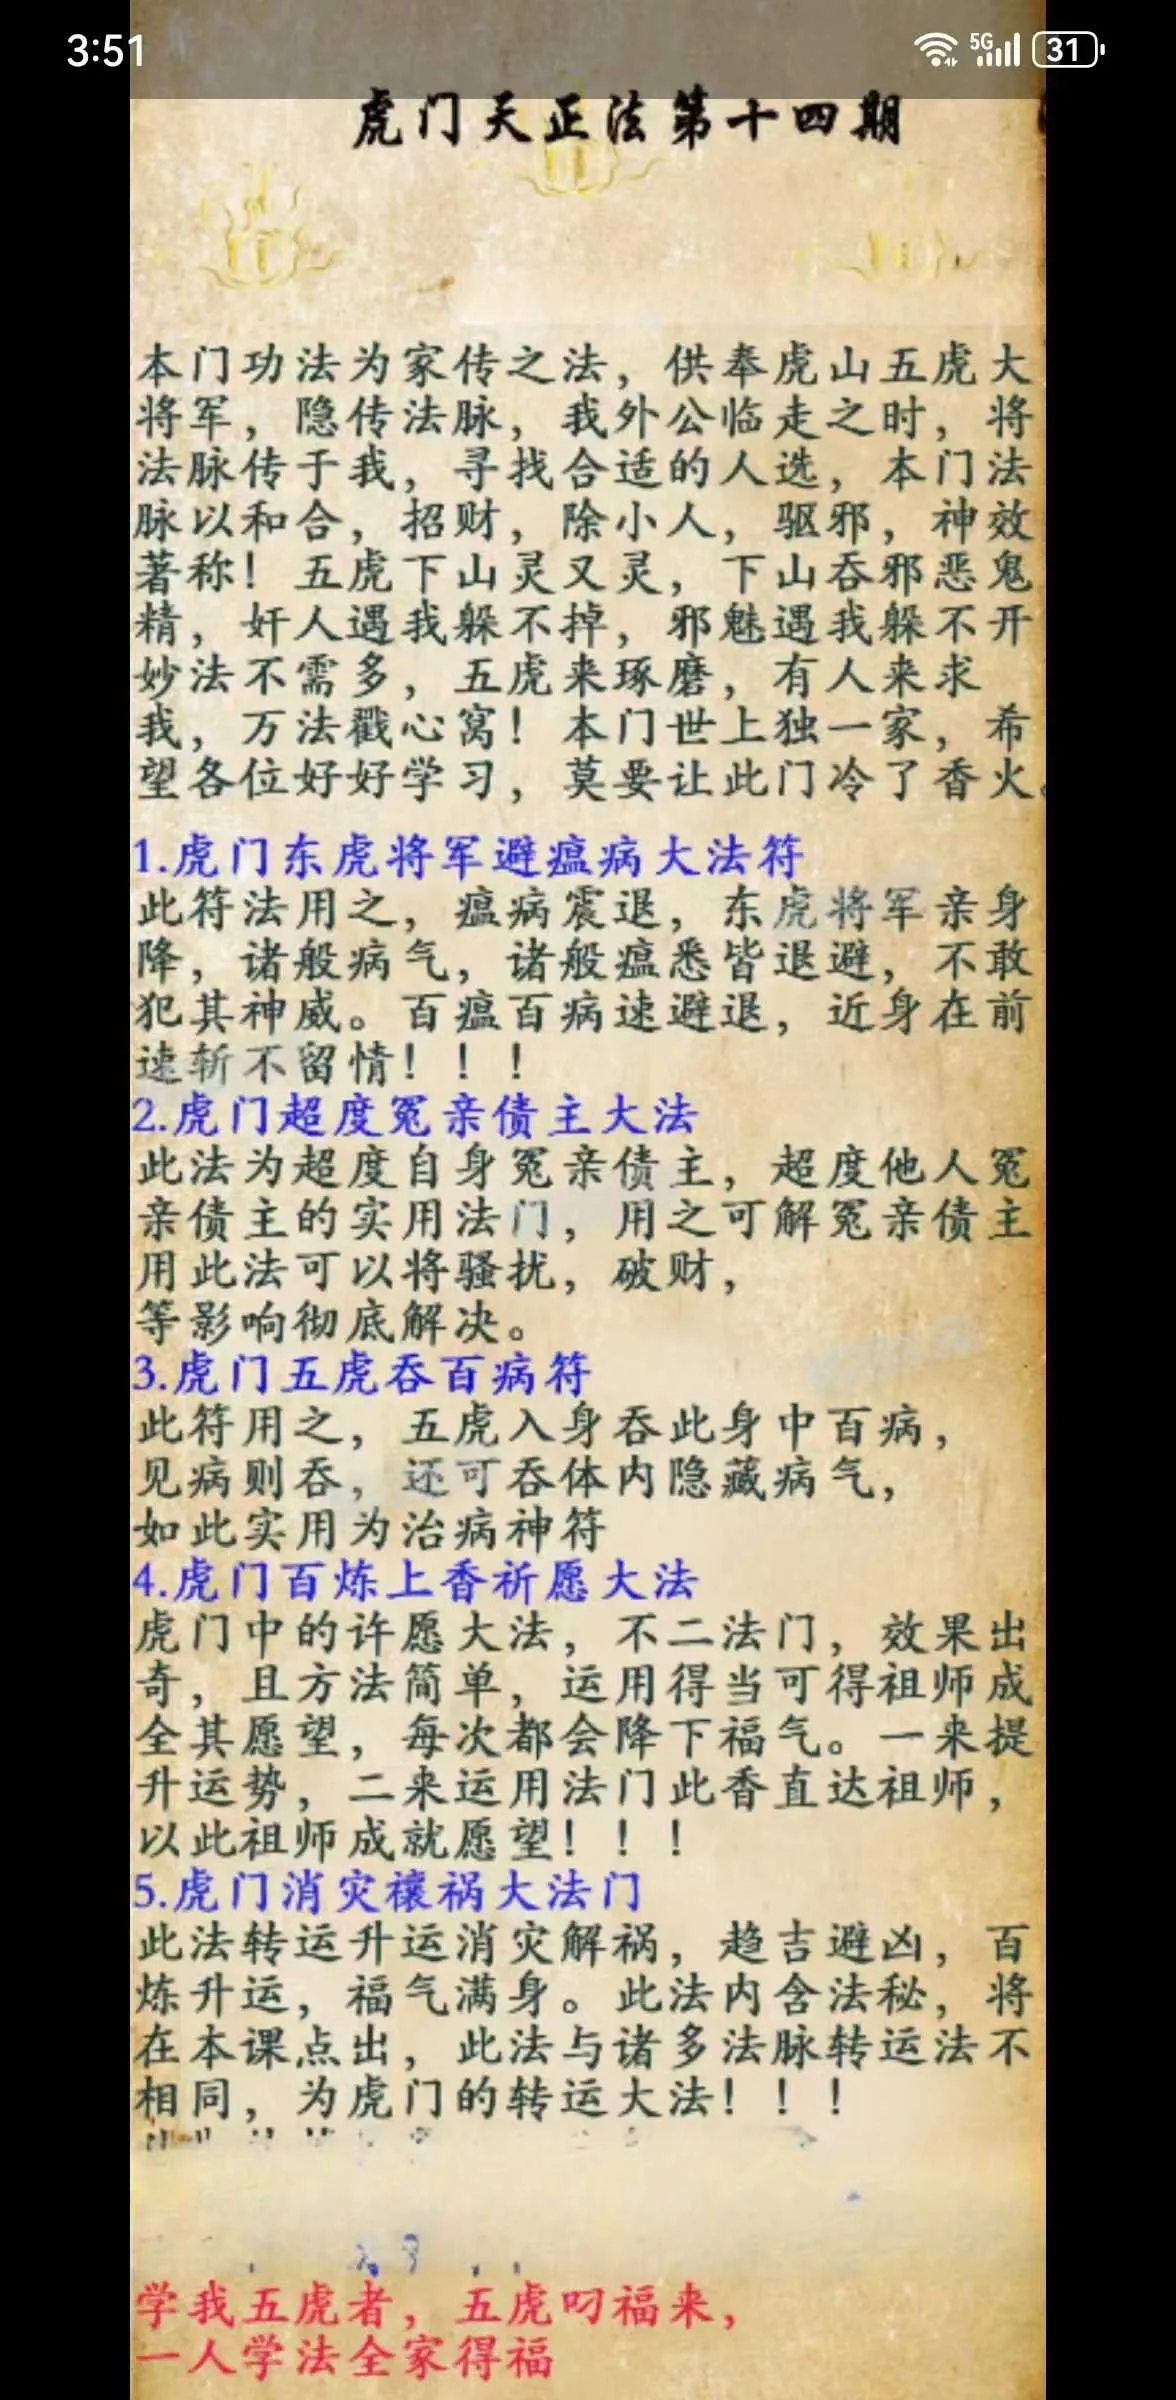 3:51
5G
31
虎门天正法第十四期
本门功法为家传之法，供奉虎山五虎大
将军，隐传法脉，我外公临走之时，将
法脉传于我，寻找合适的人选，本门法
脉以和合，招财，除小人，驱邪，神效
著称！五虎下山灵又灵，下山吞邪恶鬼
精，奸人遇我躲不掉，邪魅遇我躲不开
妙法不需多，五虎来琢磨，有人来求
我，万法戳心窝！本门世上独一家，希
望各位好好学习，莫要让此门冷了香火。
1.虎门东虎将军避瘟病大法符
此符法用之，瘟病震退，东虎将军亲身
降，诸般病气，诸般瘟悉皆退避，不敢
犯其神威。百瘟百病速避退，近身在前
速斩不留情！！！
2.虎门超度冤亲债主大法
此法为超度自身冤亲债主，超度他人冤
亲债主的实用法门，用之可解冤亲债主
用此法可以将骚扰，破财，
等影响彻底解决。
3.虎门五虎吞百病符
此符用之，五虎入身吞此身中百病，
见病则吞，还可吞体内隐藏病气，
如此实用为治病神符
4.虎门百炼上香祈愿大法
虎门中的许愿大法，不二法门，效果出
奇，且方法简单，运用得当可得祖师成
全其愿望，每次都会降下福气。一来提
升运势，二来运用法门此香直达祖师，
以此祖师成就愿望！！！
5.虎门消灾禳祸大法门
此法转运升运消灾解祸，趋吉避凶，百
炼升运，福气满身。此法内含法秘，将
在本课点出，此法与诸多法脉转运法不
相同，为虎门的转运大法！！！
学我五虎者，五虎叼福来，
一人学法全家得福